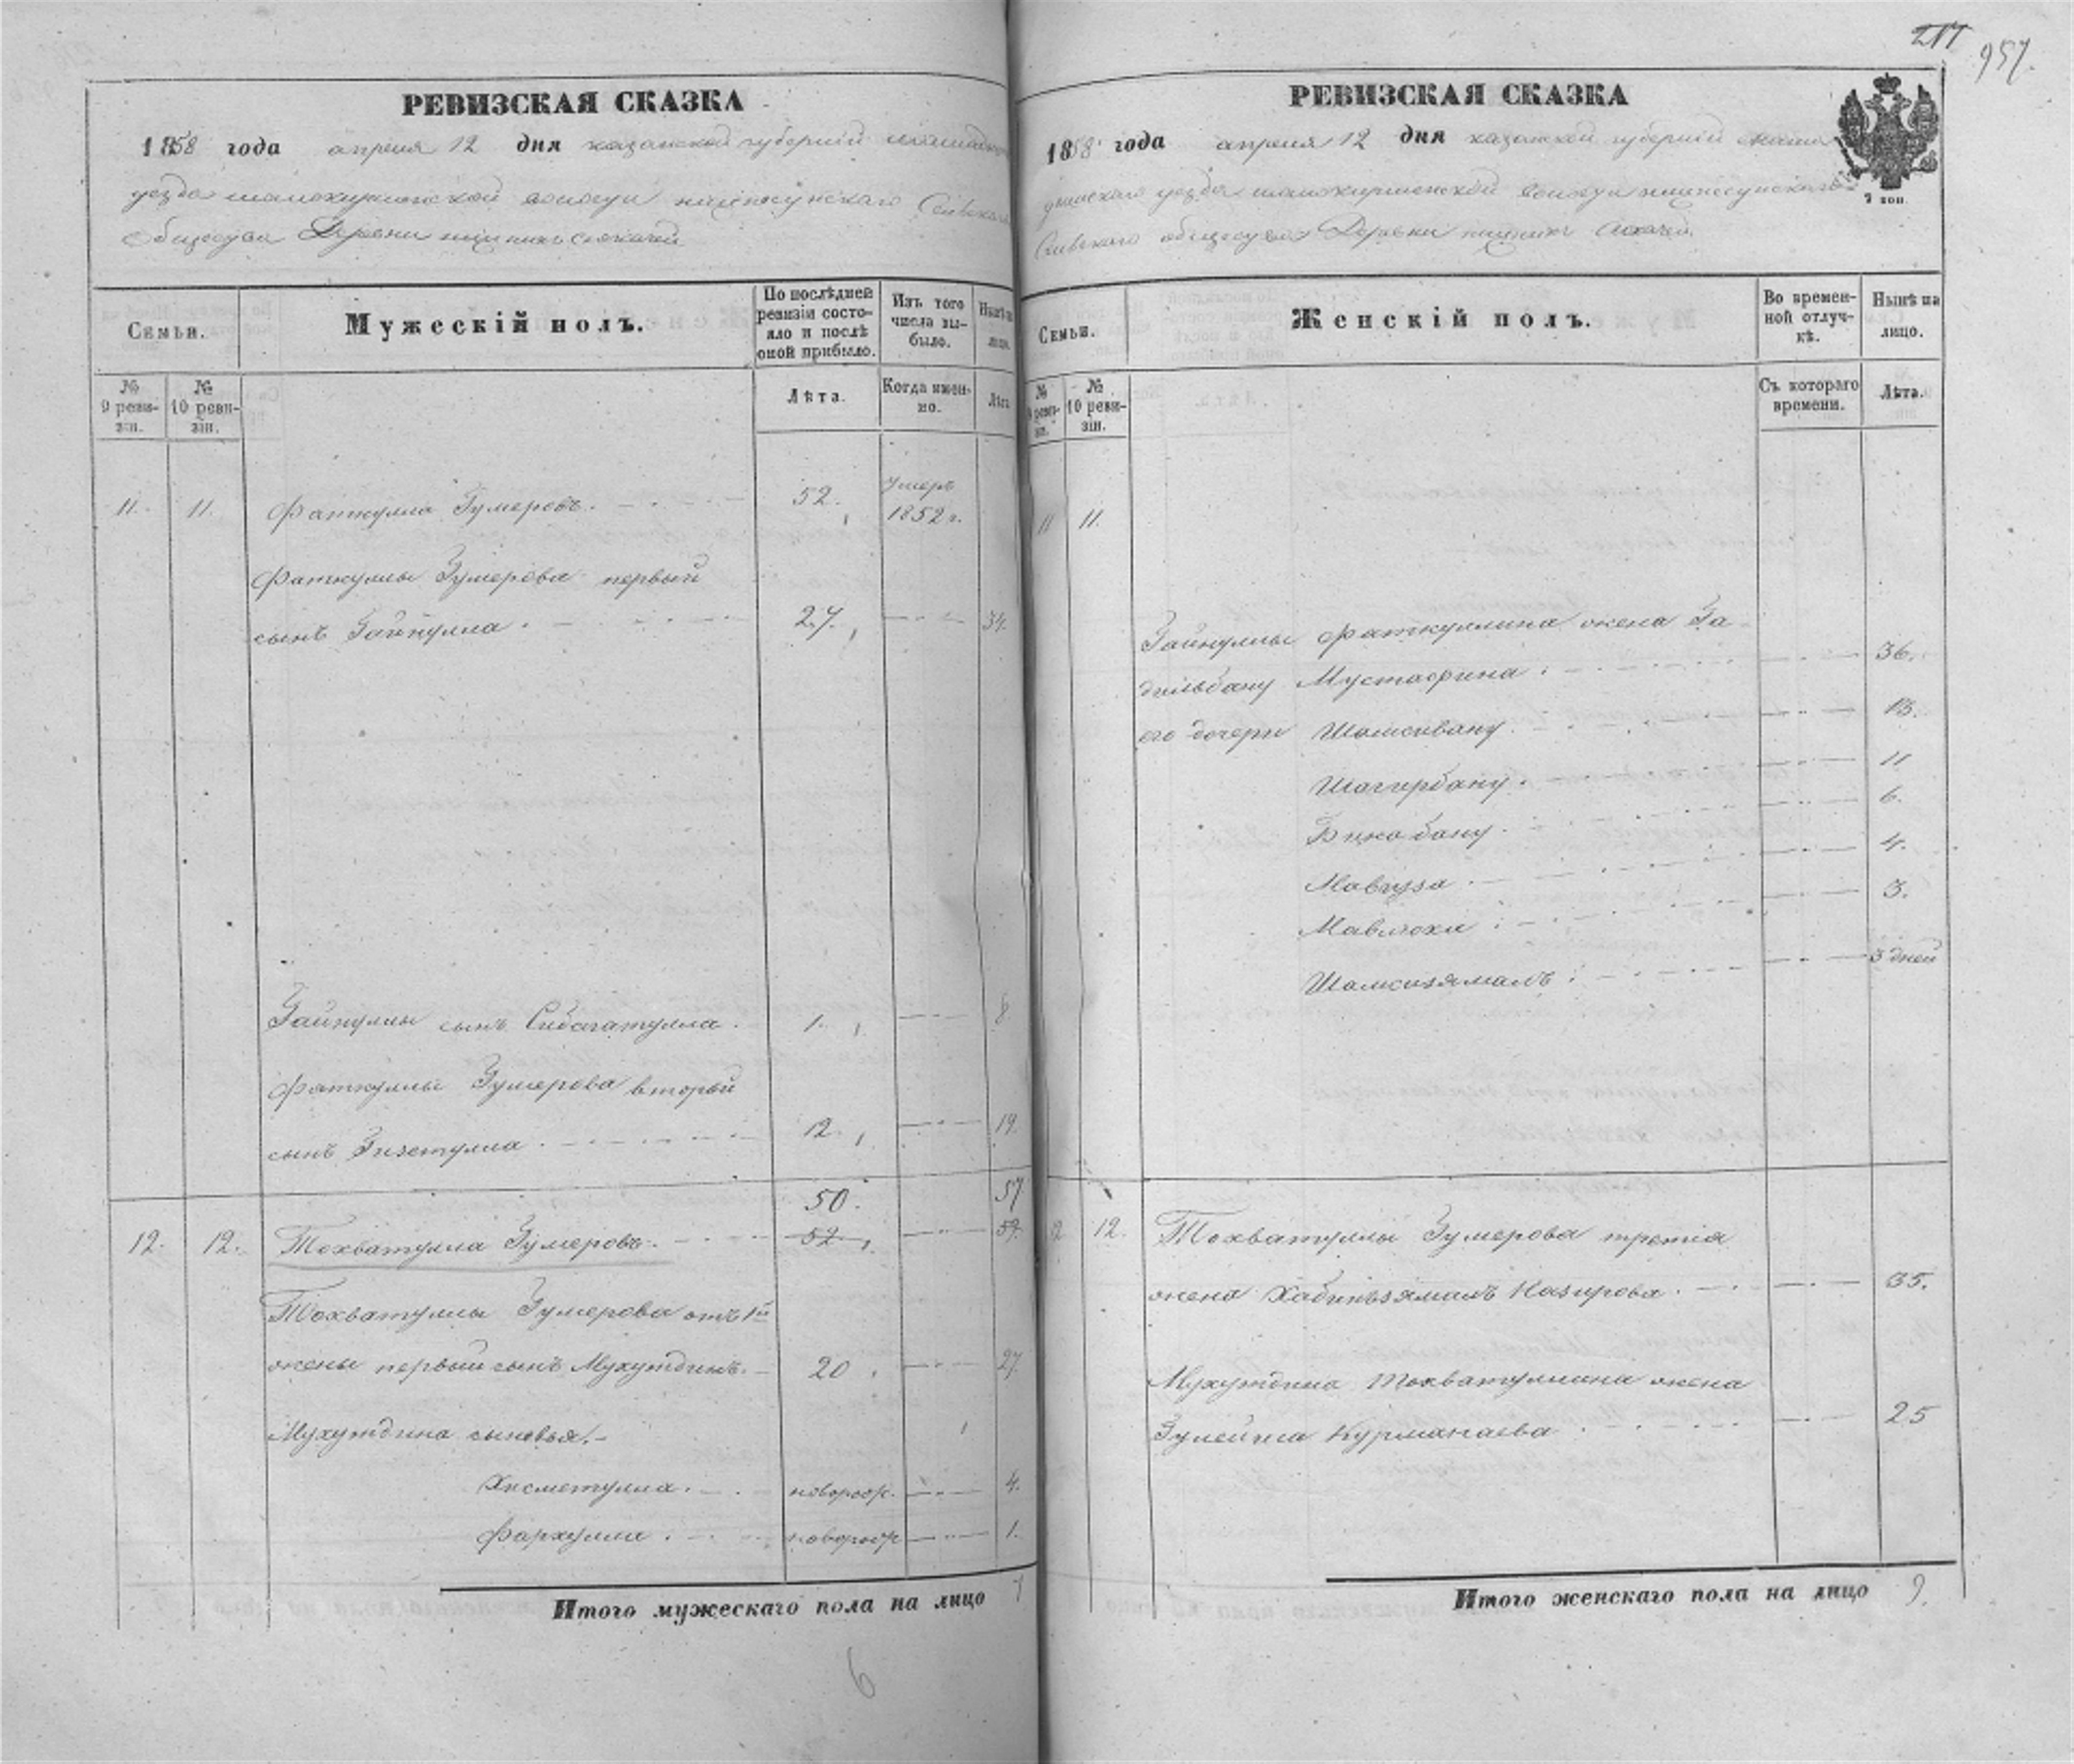 217
957.
РЕВИЗСКАЯ СКАЗКА
1858 года апреля 12 дня казанской губернiй мамадыш
уезда волости Сельскаго
общества Деревни
Семьи.
Мужескій полъ.
По послѣдней ревизіи состояло и послѣ оной прибыло.
Изъ того числа выбыло.
Нынѣ на лицо.
№ 9 ревизіи.
№ 10 ревизіи.
Лѣта.
Когда именно.
Лѣта
11. 11. Фаткулла Гумеровъ. 52. умеръ 1852 г.
Фаткуллы Гумерова первый
сынъ Зайнулла. 27. 34.
Зайнуллы сынъ Сибагатулла. 1. 8
Фаткуллы Гумерова вторый
сынъ Гизетулла. 12. 19.
50. 57
12. 12. Тохватулла Гумеровъ. 52 59
Тохватуллы Гумерова отъ 1й
жены первый сынъ Мухутдинъ. 20 27.
Мухутдина сыновья.
Хисметулла. новорож. 4.
Фархулла. новорож 1.
Итого мужескаго пола на лицо 7
6
РЕВИЗСКАЯ СКАЗКА
1858 года апреля 12 дня казанской губернiй мама
дышскаго уезда волости
Сельскаго общества Деревни
7 коп.
Семьи.
Женскій полъ.
Во временной отлучкѣ.
Нынѣ на лицо.
№ 9 ревизіи.
№ 10 ревизіи.
Съ котораго времени.
Лѣта.
11 11.
Зайнуллы Фаткуллина жена Га
дильбану Мустафина. 36.
его дочери Шамсибану. 13.
Шагирбану. 11
Бикабану. 6.
Мавгуза. 4.
Мавлюха 3.
Шамсизямалъ 3 дней
12 12. Тохватуллы Гумерова третiя
жена ХабинъзямалъНазирова. 35.
Мухутдина Тохватуллина жена
Зулейха Курманаева 25
Итого женскаго пола на лицо 9.